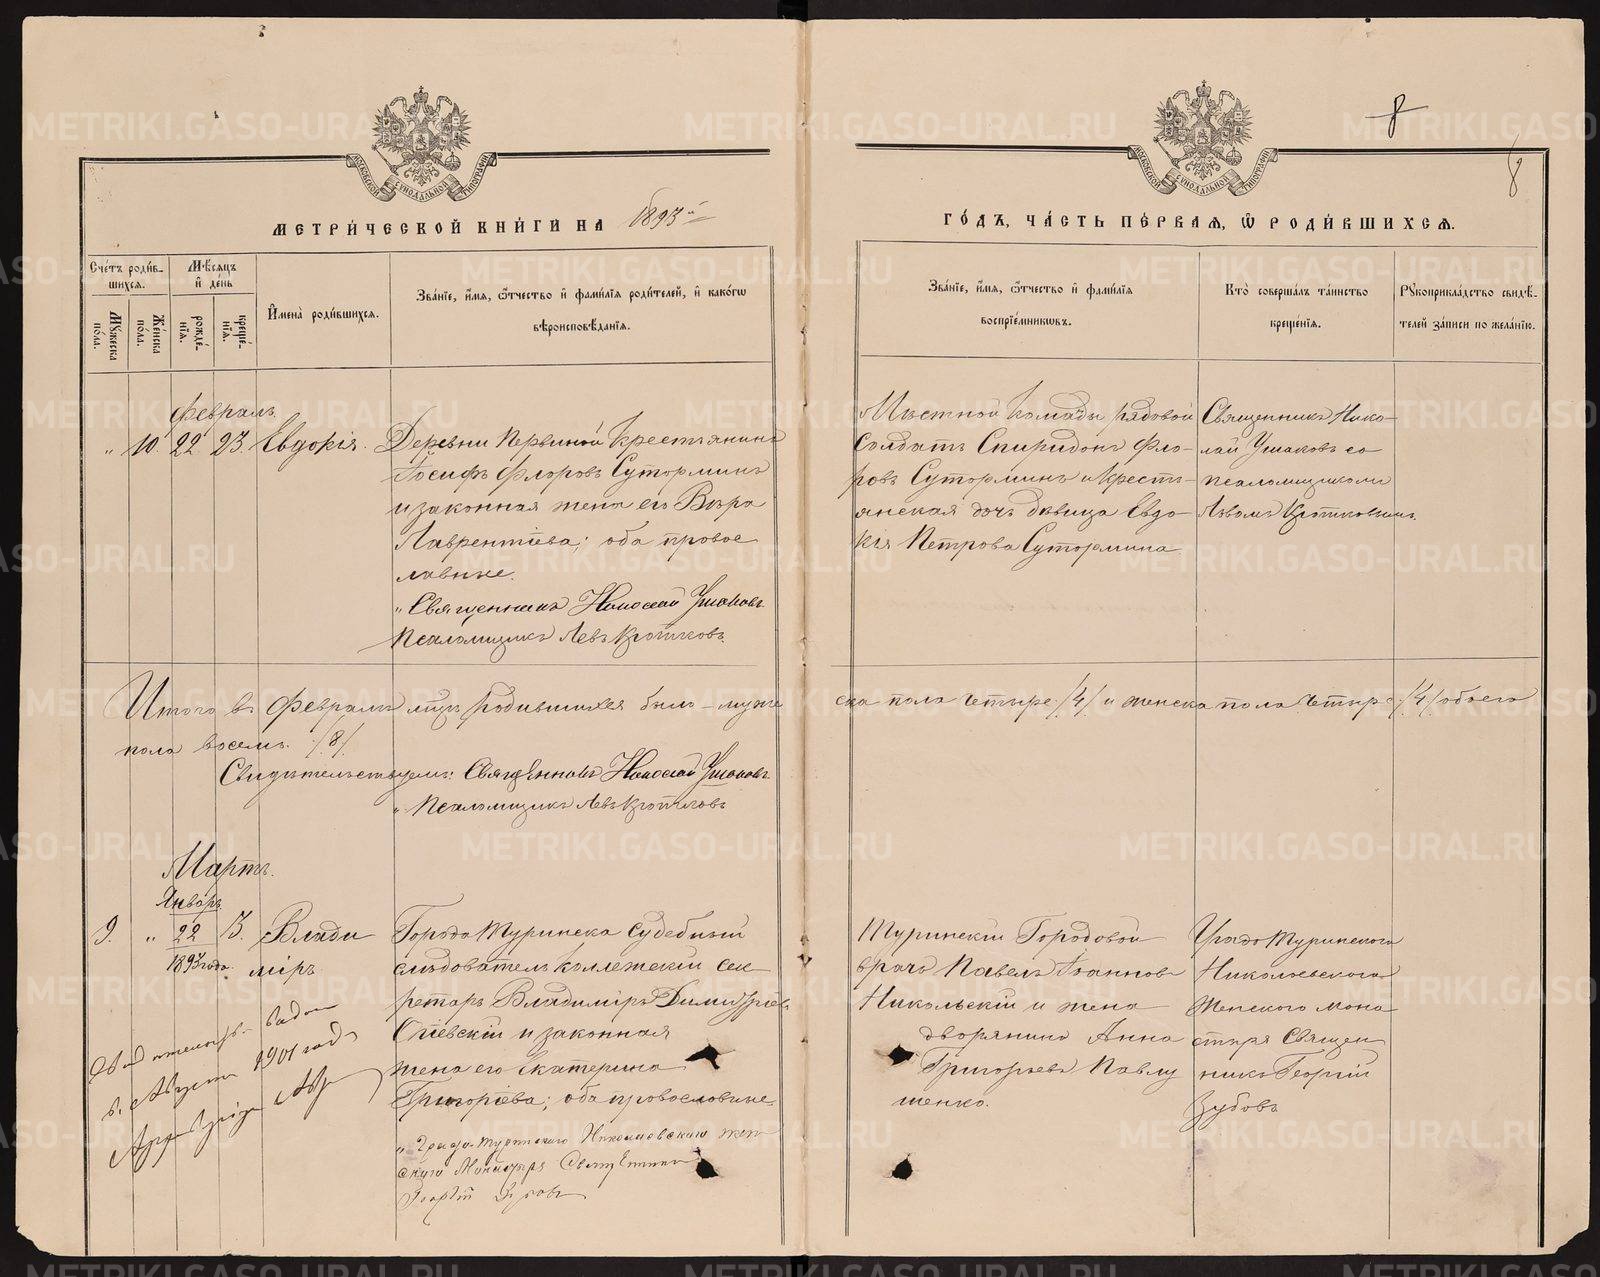 8
8
МОСКОВСКОЙ СѴНОДАЛЬНОЙ ТИПОГРАФІИ
МОСКОВСКОЙ СѴНОДАЛЬНОЙ ТИПОГРАФІИ
МЕТРИ́ЧЕСКОЙ КНИ́ГИ НА 1893й
ГО́ДЪ, ЧА́СТЬ ПЕ́РВАЯ, Ѿ РОДИ́ВШИХСЯ.
Сче́тъ роди́в-
шихся.
Мꙋ́жеска
по́ла.
Же́нска
по́ла.
Мѣ́сяцъ
и҆ де́нь
рожде́-
нїя.
креще́-
нїя.
И҆мена̀ роди́вшихся.
Зва́нїе, и҆́мя, ѻ҆́тчество и҆ фами́лїя роди́телей, и҆ како́гѡ
вѣроисповѣ́данїя.
Зва́нїе, и҆́мя, ѻ҆́тчество и҆ фами́лїя
воспрїе́мникѡвъ.
Кто̀ соверша́лъ та́инство
креще́нїя.
Рꙋкоприкла́дство свидѣ́-
телей за́писи по жела́нїю.
Февраль.
„ 10. 22. 23. Евдокія.
Деревни Первиной крестьянинъ
Іосифъ Флоровъ Суторминъ
и законная жена его Вѣра
Лаврентіева; оба право
славные.
„ Священникъ Николай Ушаковъ
Псаломщикъ Левъ Кротковъ.
Мѣстной команды рядовой
Солдатъ Спиридонъ Фло-
ровъ Суторминъ и крестъ-
янская дочь дѣвица Евдо-
кія Петрова Сутормина
Священникъ Нико-
лай Ушаковъ со
псаломщикомъ
Львомъ Кротковымъ.
Итого въ Февралѣ м-цѣ родившихся было – муже
ска пола четыре /4/ и женска пола четыре /4/ обоего
пола восемь /8/
Свидѣтельствуемъ: Священникъ Николай Ушаковъ
„ Псаломщикъ Левъ Кротковъ
Мартъ.
Январь
9. „ 22 3. Влади
1893 года. міръ
Города Туринска Судебный
слѣдователь коллежскій сек
ретарь Владиміръ Димитріев
и законная
жена его Екатерина
Григоріева; оба православные.
„ Градо-Туринскаго Николаевскаго жен
скаго Монастыря Священникъ
Георгій Зубовъ
Туринскій Городовой
врачъ Павелъ Іоанновъ
Никольскій и жена
дворянина Анна
Григорьева Павлу
шенко.
Градо Туринскаго
Николаевскаго
Женскаго мона
стыря Священ
никъ Георгій
Зубовъ
выдано
8. Августа 1901 года
METRIKI.GASO-URAL.RU